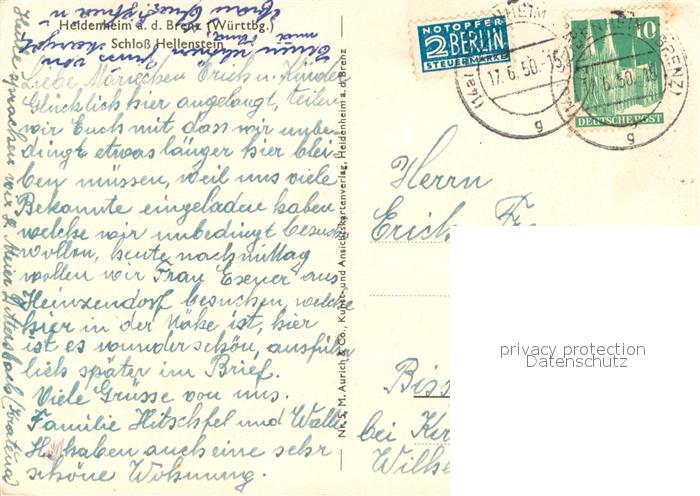 Heidenheim a. d. Brenz (Württbg.)
Schloß Hellenstein
Liebe Mariechen Erich u. Kinder
Glücklich hier angelangt, teilen
wir Euch mit dass wir unbe-
dingt etwas länger hier blei-
ben müssen, weil uns viele
Bekannte eingeladen haben
welche wir unbedingt besuchen
wollen, heute nachmittag
wollen wir Frau Exner aus
Heinzendorf besuchen, welche
hier in der Nähe ist, hier
ist es wunderschön, ausführ-
lich später im Brief.
Viele Grüsse von uns.
Familie Hitschfel und Walle
haben auch eine sehr
schöne Wohnung.
Heute sprachen wir d. Meier
Nr. 5, M. Aurich & Co., Kunst- und Ansichtskartenverlag, Heidenheim a. d. Brenz
NOTOPFER
2 BERLIN
STEUERMARKE
17.6.50.-15
10
DEUTSCHE POST
g
g
Herrn
Erich
Biss
bei Kir
Wilhe
privacy protection
Datenschutz